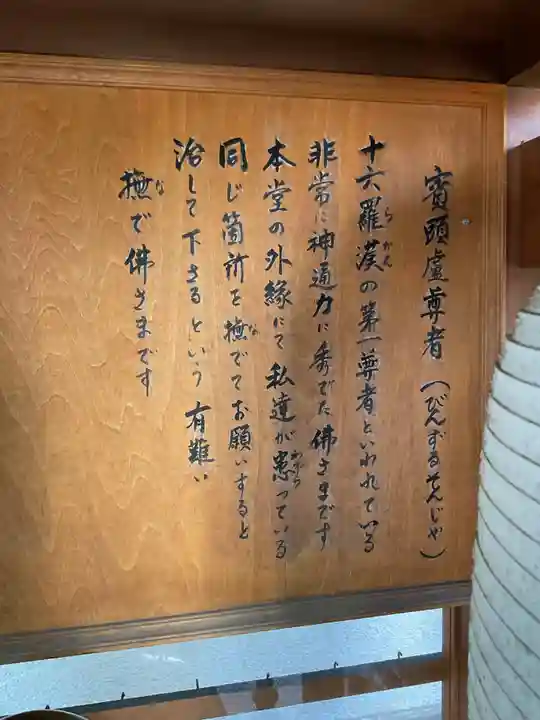 賓頭盧尊者（びんずるそんじゃ）
十六羅漢の第一尊者といわれている
らかん
非常に神通力に秀でた佛さまです
本堂の外縁にて私達が患っている
わずら
同じ箇所を撫でてお願いすると
な
治して下さるという有難い
撫で佛さまです
な